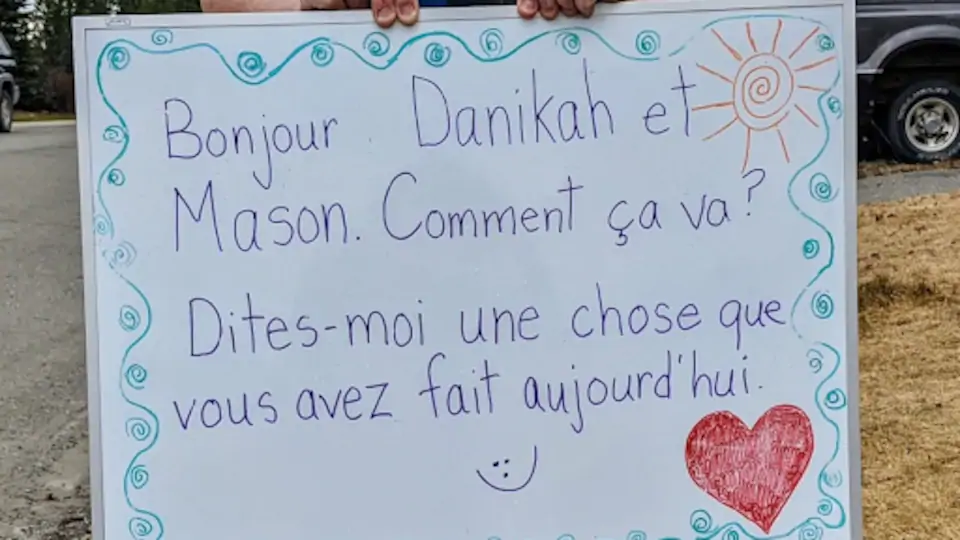 Bonjour. Danikah et
Mason. Comment ça va?
Dites-moi une chose que
vous avez fait aujourd'hui.